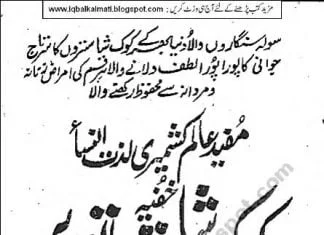 مزید کتب پڑھنے کے لئے آج ہی وزٹ کریں : www.iqbalkalmati.blogspot.com
سولہ سنگاروں والا دنیا بھر کے کوک شاستروں کا نتارج
جوانی کا پورا پورا لطف دلانے والا ہر قسم کی امراض نونانہ
ومردانہ سے محفوظ رکھنے والا
مفید عالم کشمیری لذت النساء
خفیہ